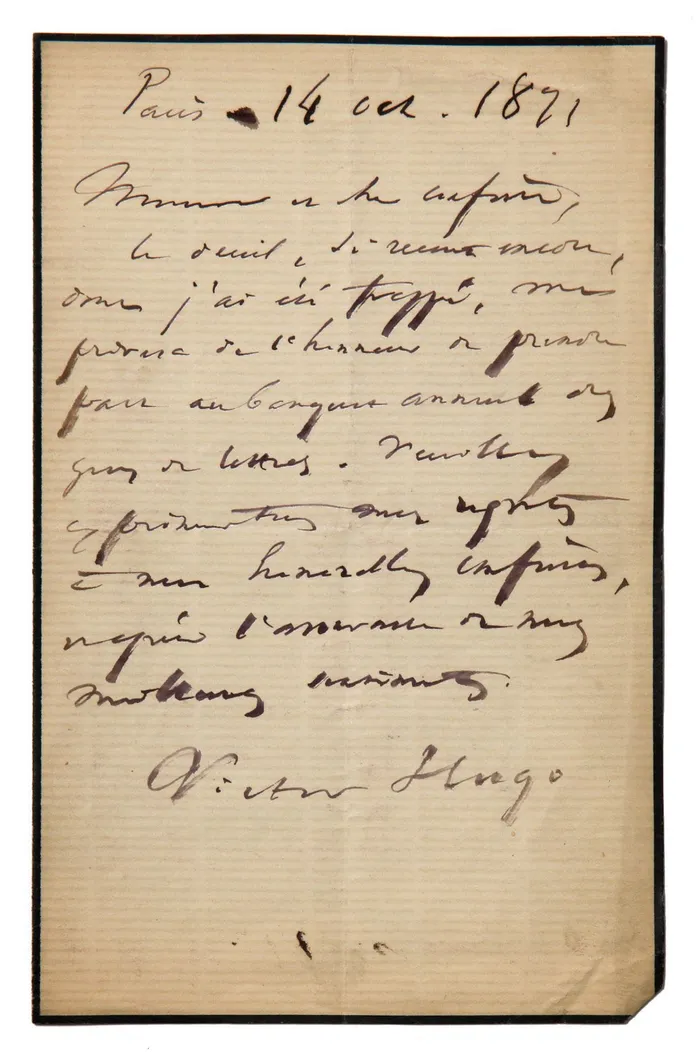 Paris - 14 oct. 1871
Monsieur et cher confrère,
le deuil, si récent encore,
dont j'ai été frappé, me
privera de l'honneur de prendre
part au banquet annuel des
gens de lettres. Veuillez
exprimer mes regrets
à mes honorables confrères,
l'assurance de mes
meilleurs sentiments.
Victor Hugo